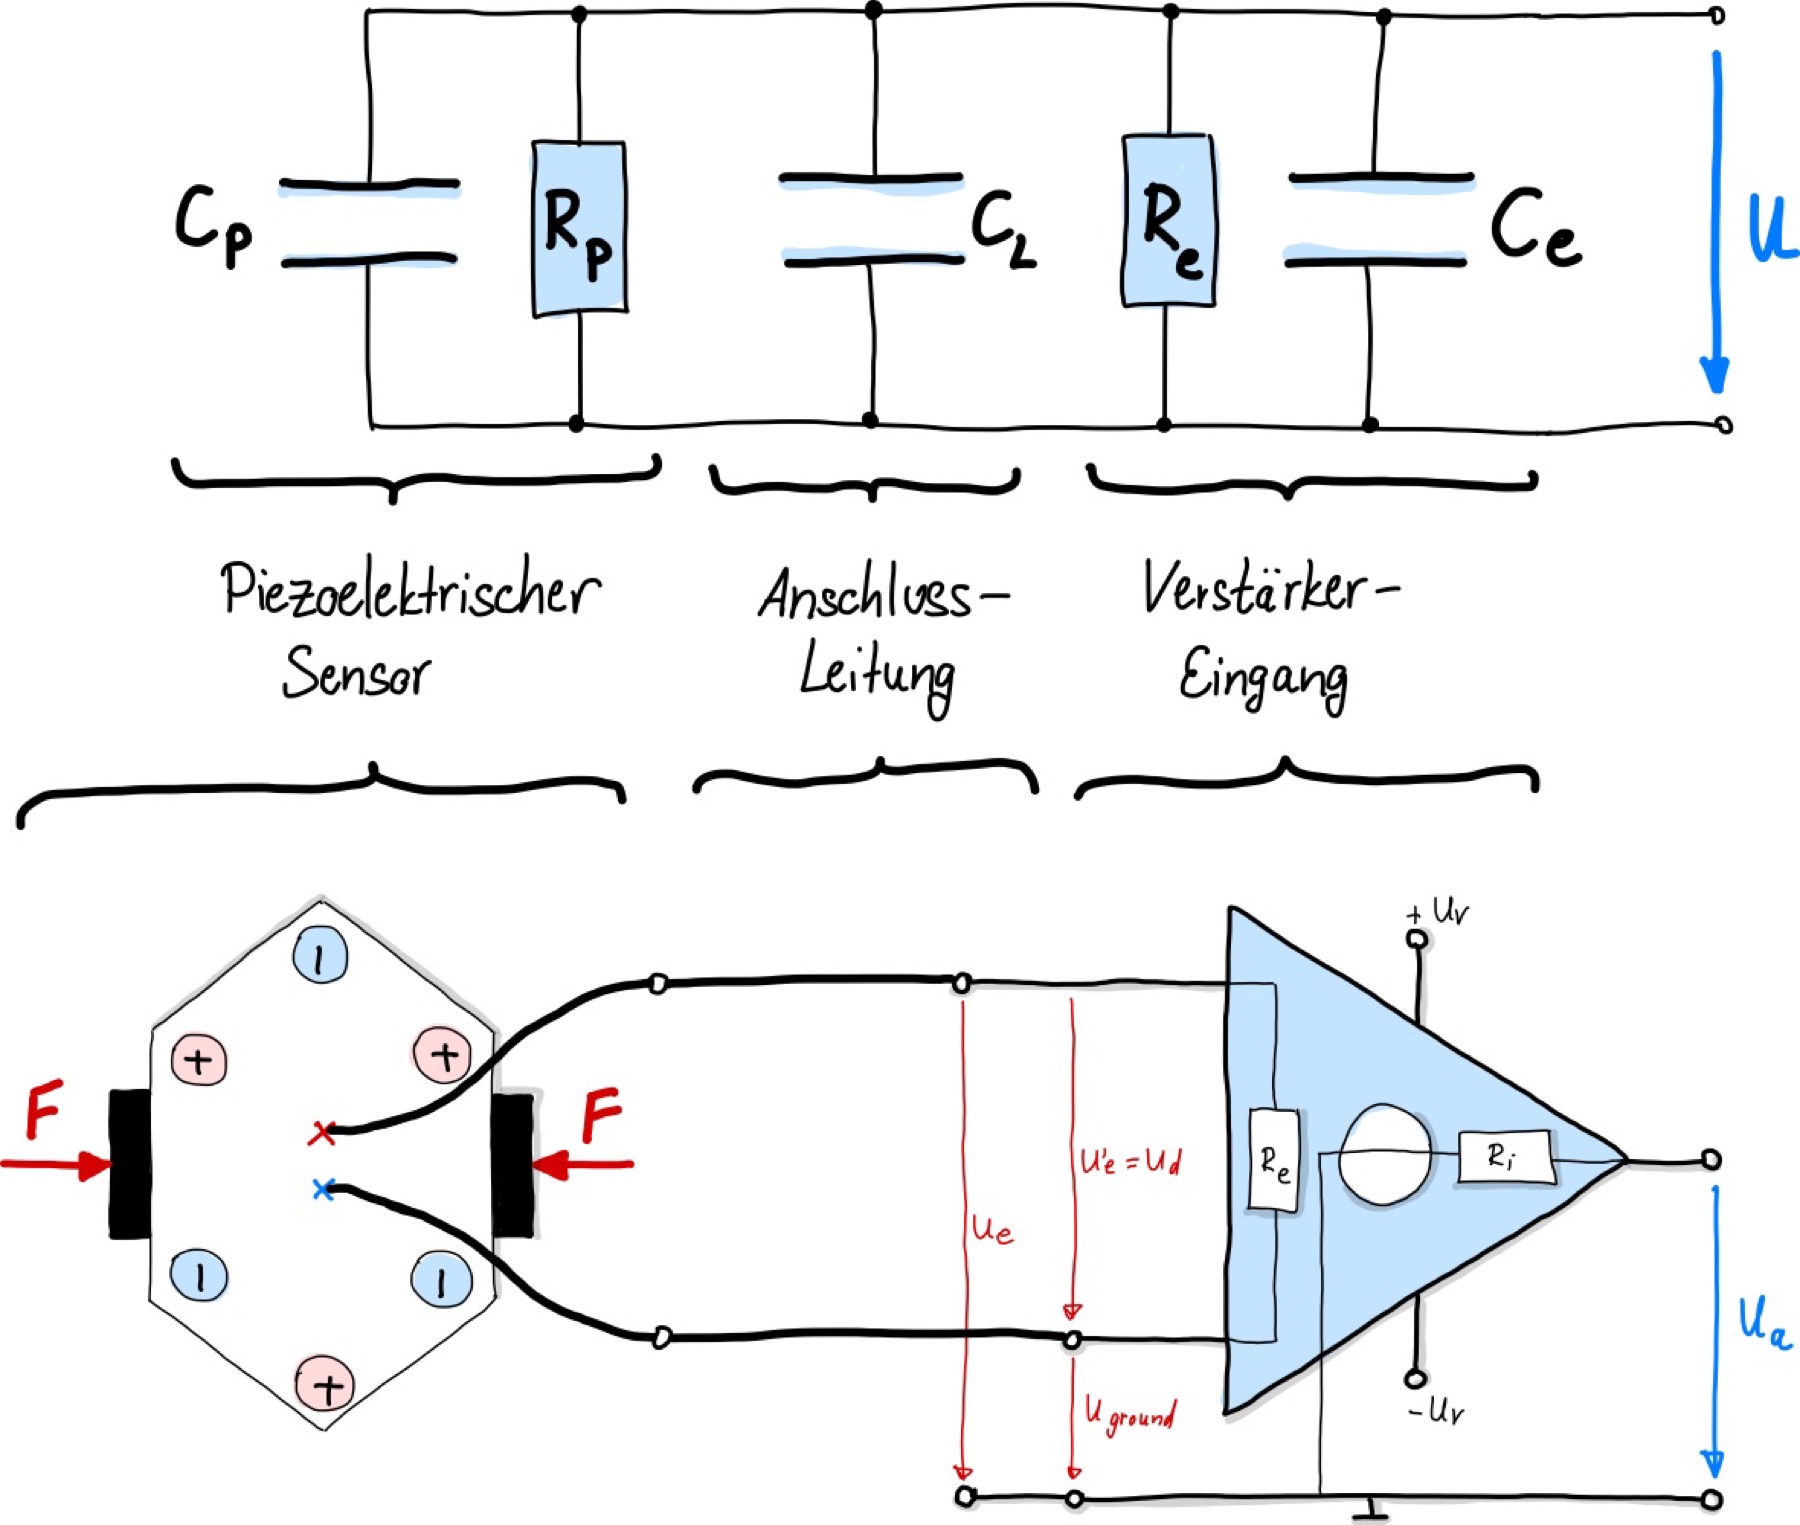 Cp
Rp
CL
Re
Ce
U
Piezoelektrischer
Sensor
Anschluss-
Leitung
Verstärker-
Eingang
+Uv
F
F
U'e = Ud
Ue
Re
Ri
Ua
Uground
-Uv